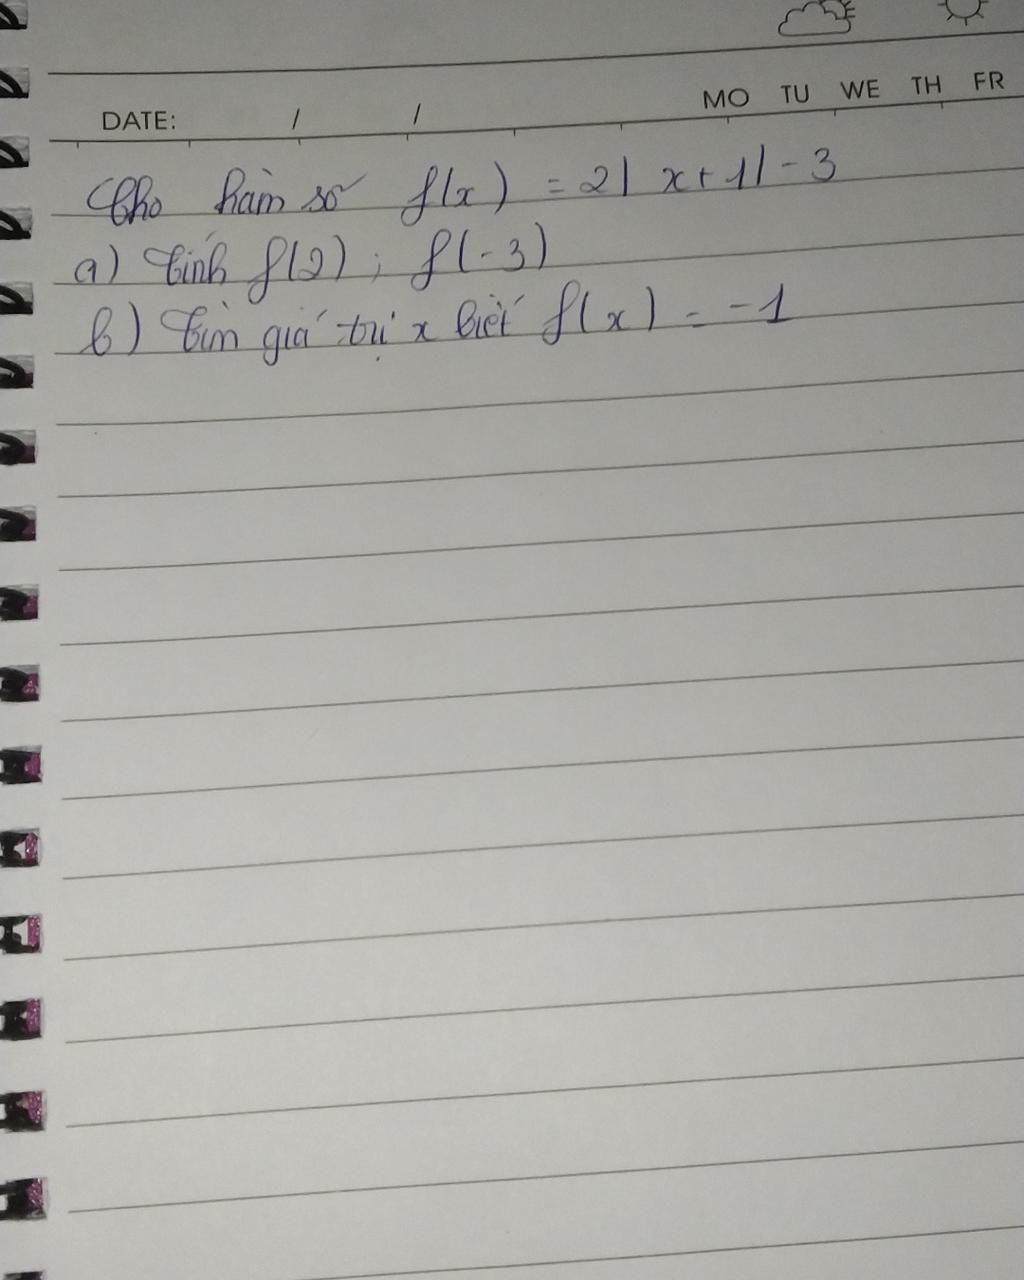 MO TU WE TH FR
DATE: / /
Cho hàm số f(x) = 2|x+1|-3
a) Tính f(2); f(-3)
b) Tìm giá trị x biết f(x) = -1